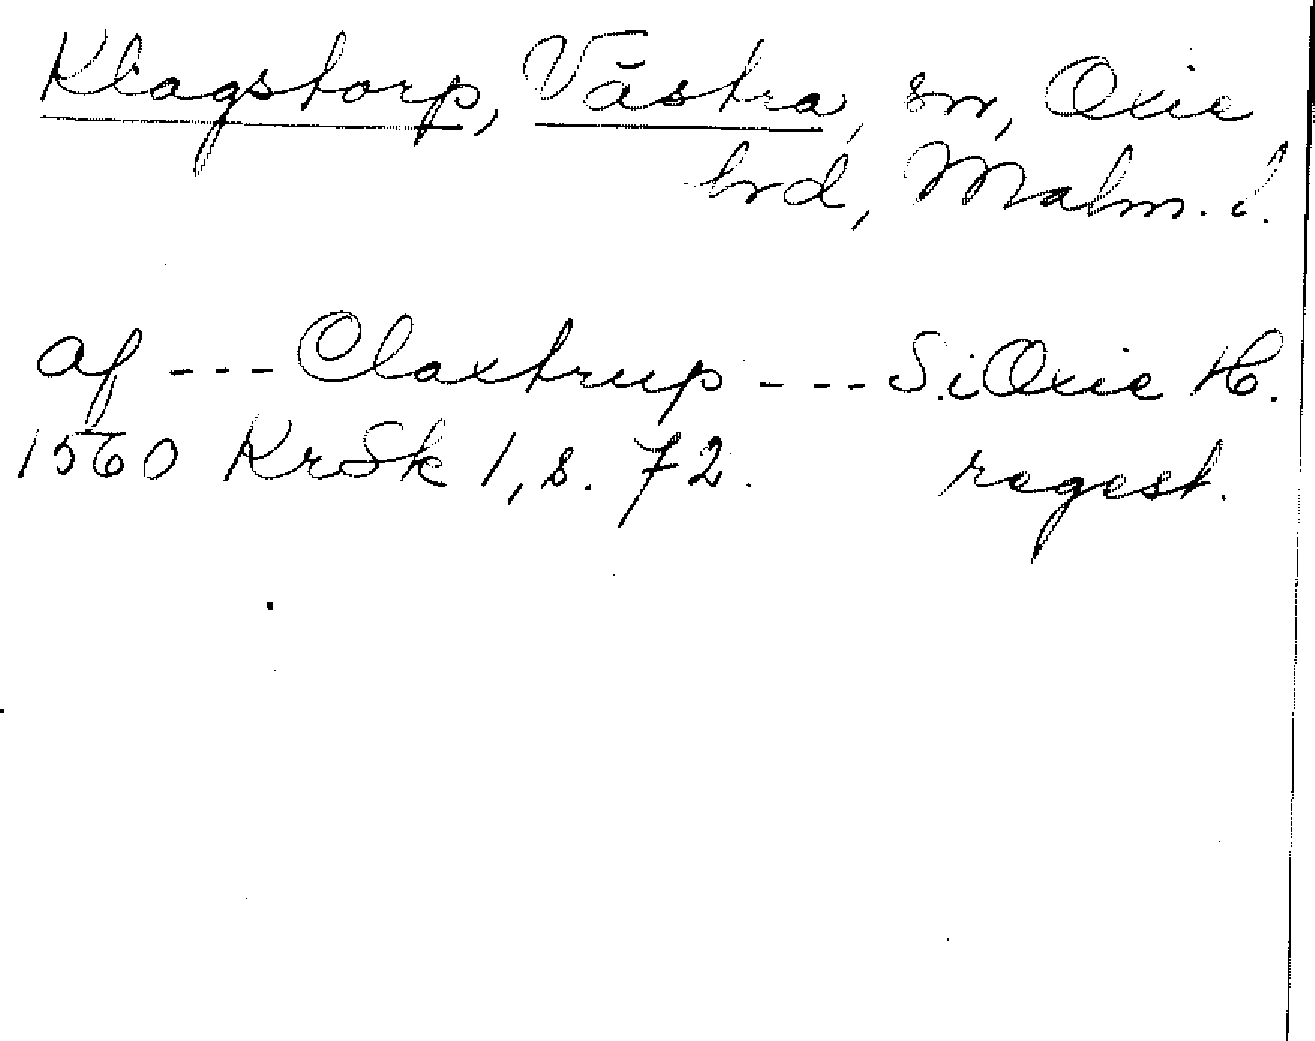 Klagstorp, Västra, sn, Oxie
hrd, Malm. l.
af --- Claxtrup --- S. i Oxie H.
1560 KrSk 1, s. 72. regest.